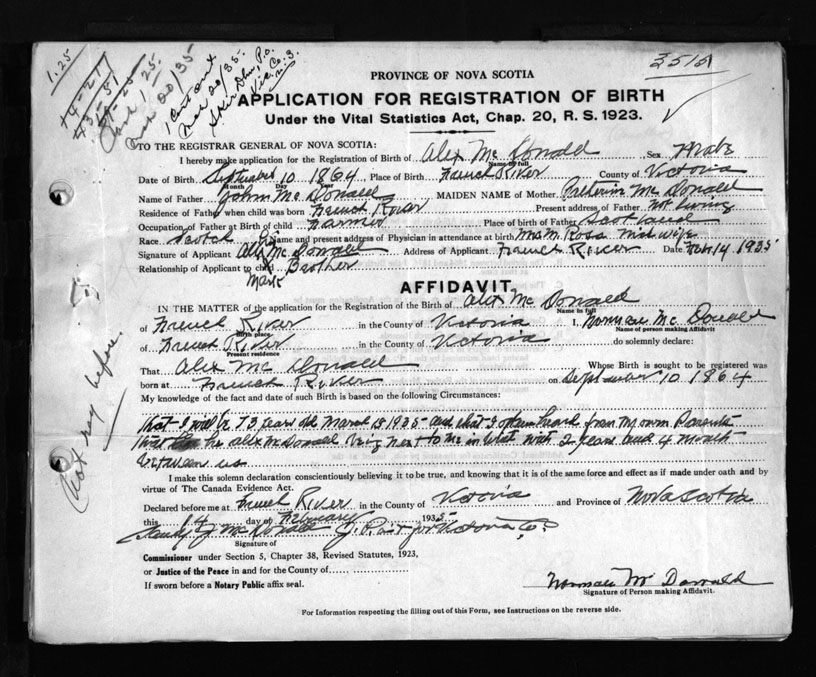 1.25
3515
PROVINCE OF NOVA SCOTIA
APPLICATION FOR REGISTRATION OF BIRTH
Under the Vital Statistics Act, Chap. 20, R. S. 1923.
TO THE REGISTRAR GENERAL OF NOVA SCOTIA:
I hereby make application for the Registration of Birth of Alex Mc Donald Sex Male
Name in full
Date of Birth September 10 1864 Place of Birth French River County of Victoria
Month Day Year
Name of Father John Mc Donald MAIDEN NAME of Mother Catherine Mc Donald
Residence of Father when child was born French River Present address of Father Not living
Occupation of Father at Birth of child Farmer Place of birth of Father Scotland
Race Scotch Name and present address of Physician in attendance at birth Mrs M. Ross Mid wife
Signature of Applicant Alex Mc Donald Address of Applicant French River Date Feb. 14 1935
Relationship of Applicant to child Brother
Mark
AFFIDAVIT.
IN THE MATTER of the application for the Registration of the Birth of Alex Mc Donald
Name in full
of French River in the County of Victoria I, Norman Mc Donald
Birth place Name of person making Affidavit
of French River in the County of Victoria do solemnly declare:
Present residence
That Alex Mc Donald Whose Birth is sought to be registered was
born at French River on September 10 1864
My knowledge of the fact and date of such Birth is based on the following Circumstances:
That I will be 73 years old March 15 1935 and that I often heard from my own Parents
that he Alex McDonald being next to me in with 2 years and 4 month
between us
I make this solemn declaration conscientiously believing it to be true, and knowing that it is of the same force and effect as if made under oath and by
virtue of The Canada Evidence Act.
Declared before me at French River in the County of Victoria and Province of Nova Scotia
this 14 day of February 1935
McDonald J. P. in & for Victoria Co.
Signature of
Commissioner under Section 5, Chapter 38, Revised Statutes, 1923,
or Justice of the Peace in and for the County of
If sworn before a Notary Public affix seal.
Norman Mc Donald
Signature of Person making Affidavit.
For Information respecting the filling out of this Form, see Instructions on the reverse side.